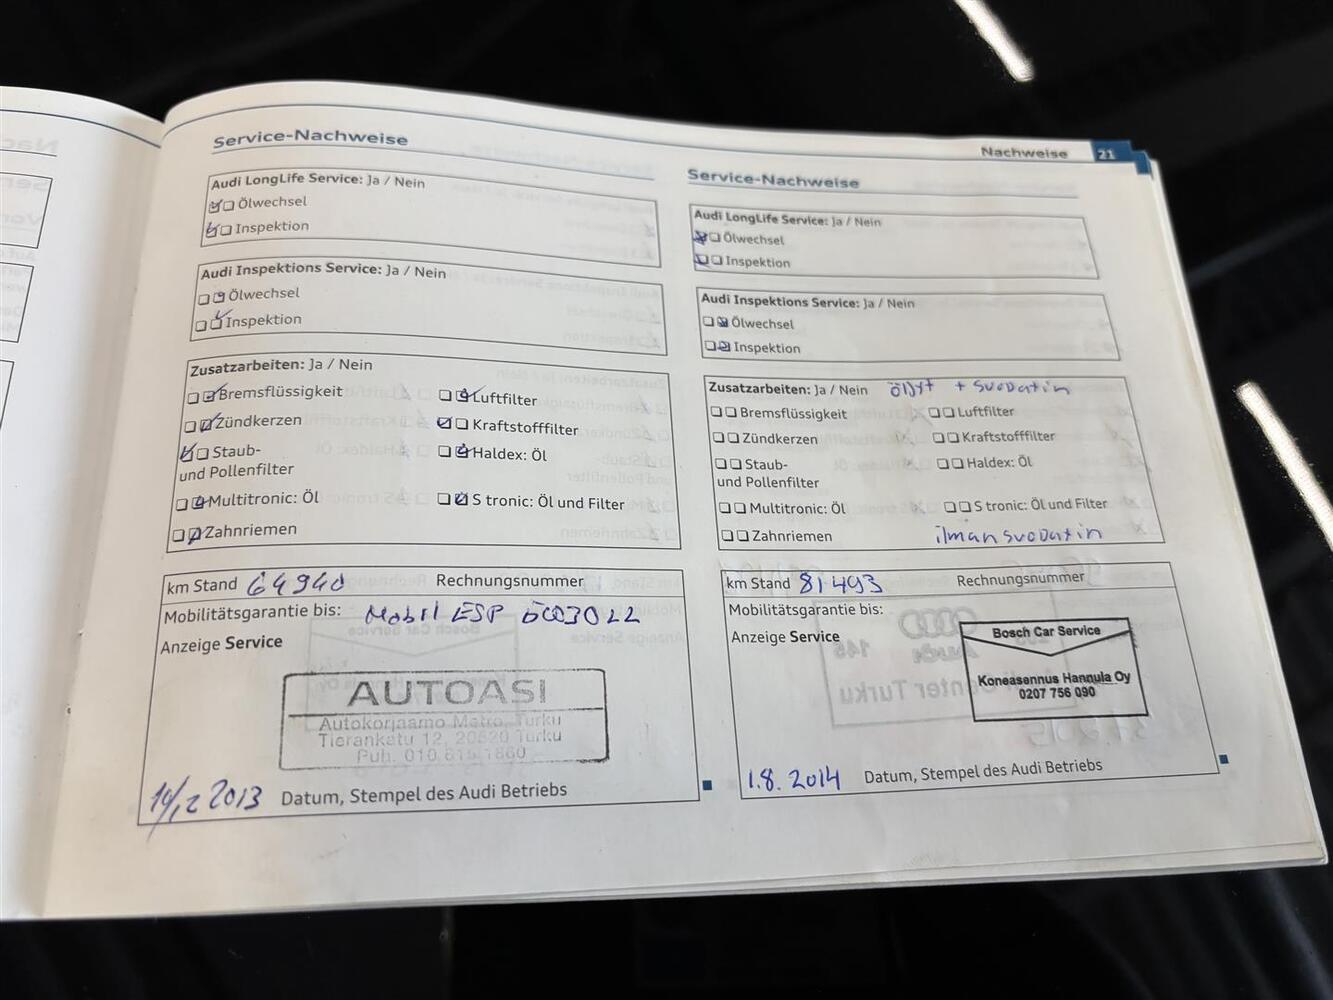 Nachweise 21
Service-Nachweise
Audi LongLife Service: Ja / Nein
Ölwechsel
Inspektion
Audi Inspektions Service: Ja / Nein
Ölwechsel
Inspektion
Zusatzarbeiten: Ja / Nein
Bremsflüssigkeit Luftfilter
Zündkerzen Kraftstofffilter
Staub- Haldex: Öl
und Pollenfilter
Multitronic: Öl S tronic: Öl und Filter
Zahnriemen
km Stand 64940 Rechnungsnummer
Mobilitätsgarantie bis: Mobil ESP
Anzeige Service
AUTOASI
Autokorjaamo Metro, Turku
Tierankatu 12, 20520 Turku
Puh. 010 615 1860
2013 Datum, Stempel des Audi Betriebs
Service-Nachweise
Audi LongLife Service: Ja / Nein
Ölwechsel
Inspektion
Audi Inspektions Service: Ja / Nein
Ölwechsel
Inspektion
Zusatzarbeiten: Ja / Nein öljyt + suodatin
Bremsflüssigkeit Luftfilter
Zündkerzen Kraftstofffilter
Staub- Haldex: Öl
und Pollenfilter
Multitronic: Öl S tronic: Öl und Filter
Zahnriemen ilmansuodatin
km Stand 81493 Rechnungsnummer
Mobilitätsgarantie bis:
Anzeige Service
Bosch Car Service
Koneasennus Hannula Oy
0207 756 090
1.8.2014 Datum, Stempel des Audi Betriebs